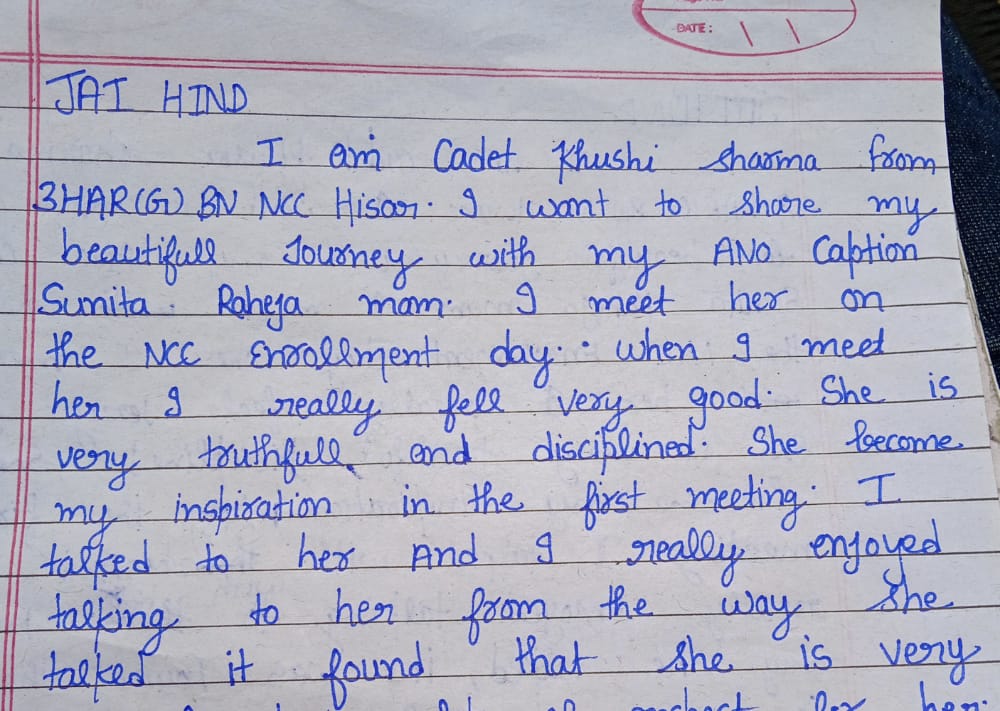 DATE:
JAI HIND
I am Cadet Khushi Sharma from
3HAR(G) BN NCC Hisar. I want to share my
beautifull Journey with my ANO Caption
Sunita Raheja mam. I meet her on
the NCC Enrollment day. when I meet
her I really fell very good. She is
very truthfull and disciplined. She become
my inspiration in the first meeting. I
talked to her And I really enjoyed
talking to her from the way she
talked it found that she is very
of respect for her.